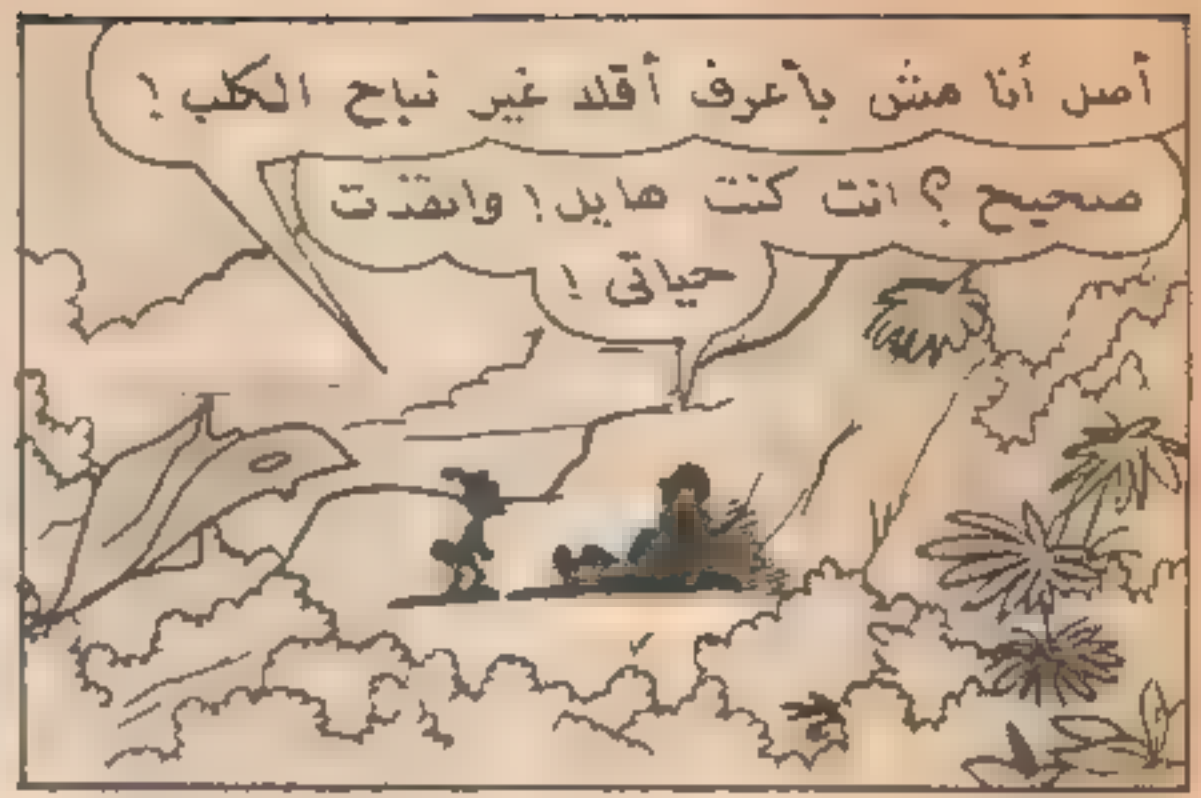 أصل أنا مش بأعرف أقلد غير نباح الكلب !
صحيح ؟ انت كنت هايل ! وانقذت
حياتى !